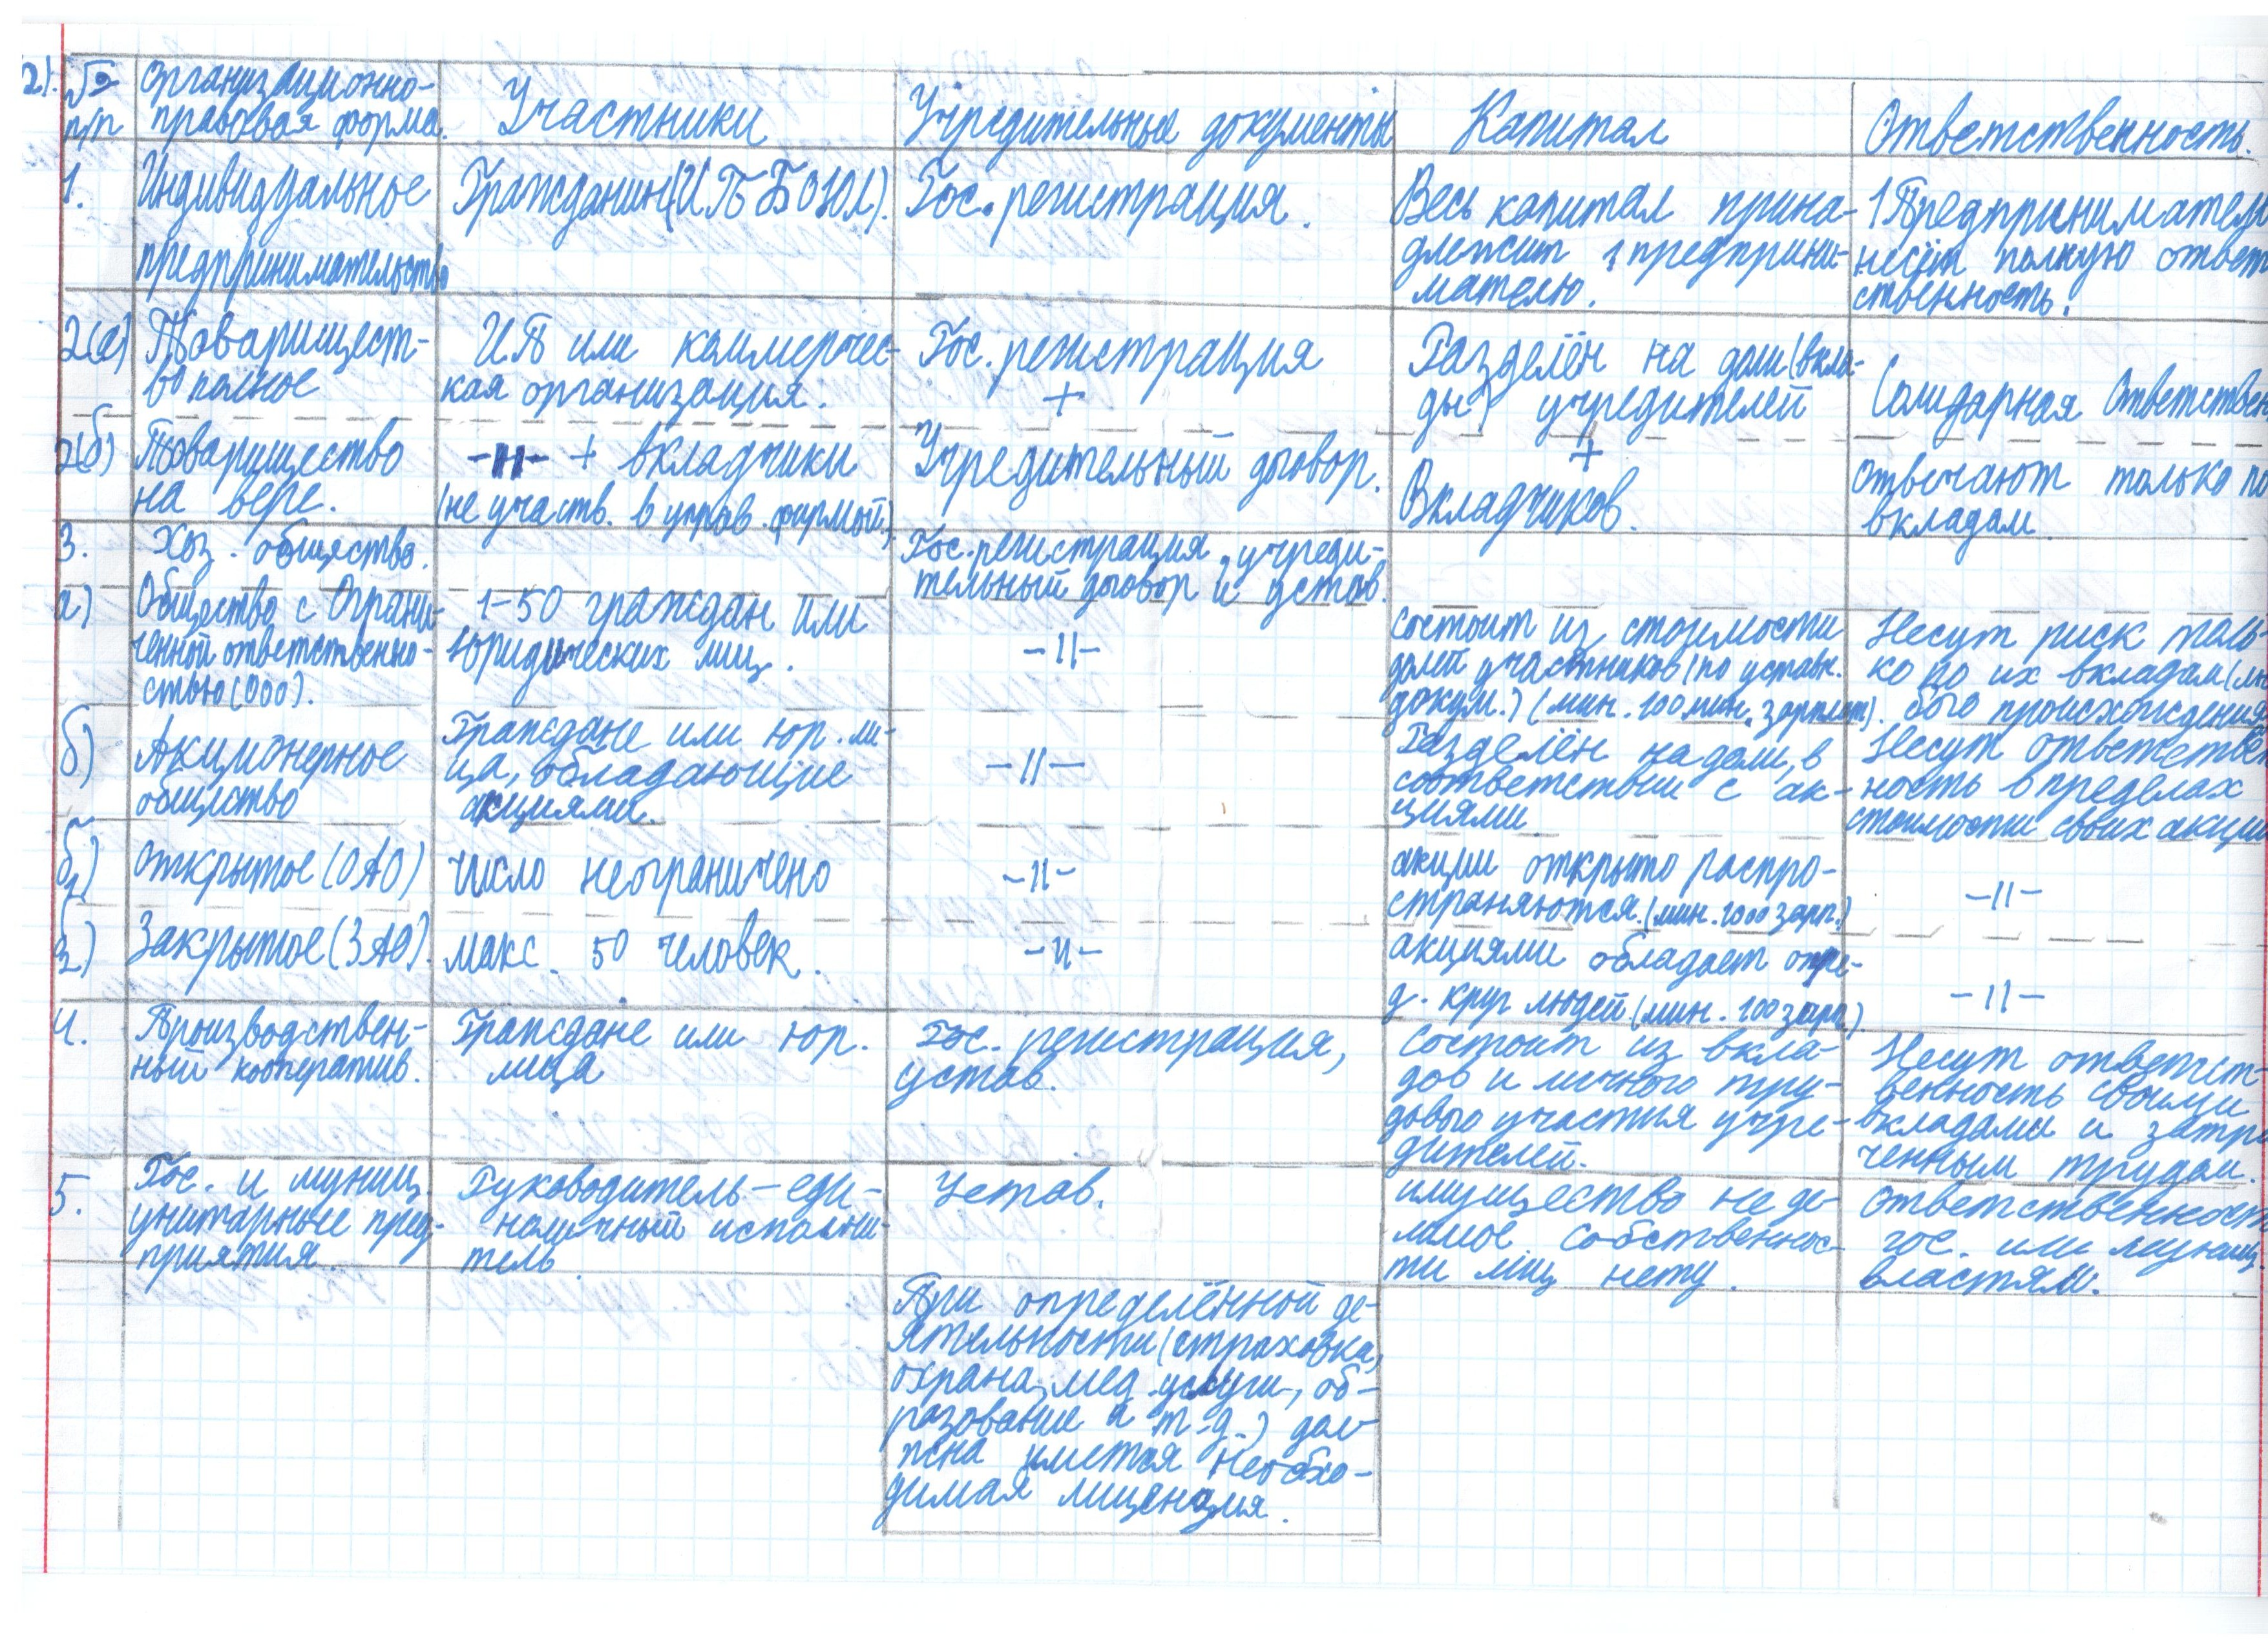 2).
№ п/п
Организационно-
правовая форма.
Участники
Учредительные документы
Капитал
Ответственность.
1.
Индивидуальное
предпринимательство
Гражданин(ИПБОЮЛ).
Гос. регистрация.
Весь капитал прина-
длежит 1 предприни-
мателю.
1 Предприниматель
несёт полную ответ
ственность.
2(а)
Товарищест-
во полное
ИП или коммерчес-
кая организация.
Гос. регистрация
+
Разделён на доли(вкла-
ды) учредителей
+
Солидарная Ответствен
2(б)
Товарищество
на вере.
-||- + вкладчики
(не участв. в управ. фирмой.)
Учредительный договор.
Вкладчиков.
отвечают только по
вкладам.
3.
Хоз. общества.
Гос. регистрация, учреди-
тельный договор и устав.
а)
Общество с Ограни-
ченной ответственно-
стью(ООО).
1-50 граждан или
Юридических лиц.
-||-
состоит из стоимости
долей участников(по уставн.
докум.) (мин. 100 мин. зарплат).
Несут риск толь-
ко по их вкладам(лю
бого происхождения
б)
Акционерное
общество
Граждане или юр. ли-
ца, обладающие
акциями.
-||-
Разделён на доли, в
соответствии с ак-
циями.
Несут ответствен
ность в пределах
стоимости своих акций
б1)
открытое (ОАО)
число неограничено
-||-
акции открыто распро-
страняются.(мин. 1000 зарп.)
-||-
б2)
Закрытое(ЗАО).
макс. 50 человек.
-||-
акциями обладает опре-
д. круг людей.(мин. 100 зарп.)
-||-
4.
Производствен-
ный кооператив.
Граждане или юр.
лица
Гос. регистрация,
устав.
состоит из вкла-
дов и личного тру-
дового участия учре-
дителей.
Несут ответст-
венность своими
вкладами и затра
ченным трудом.
5.
Гос. и муниц.
унитарные пред-
приятия.
Руководитель - еди-
наличный исполни-
тель.
Устав.
имущество не де-
лимое собственнос-
ти лиц нету.
ответственность
гос. или муниц.
властям.
При определённой де-
ятельности(страховка,
охрана, мед. услуги, об-
разование и т.д.) дол-
жна имется необхо-
димая лицензия.